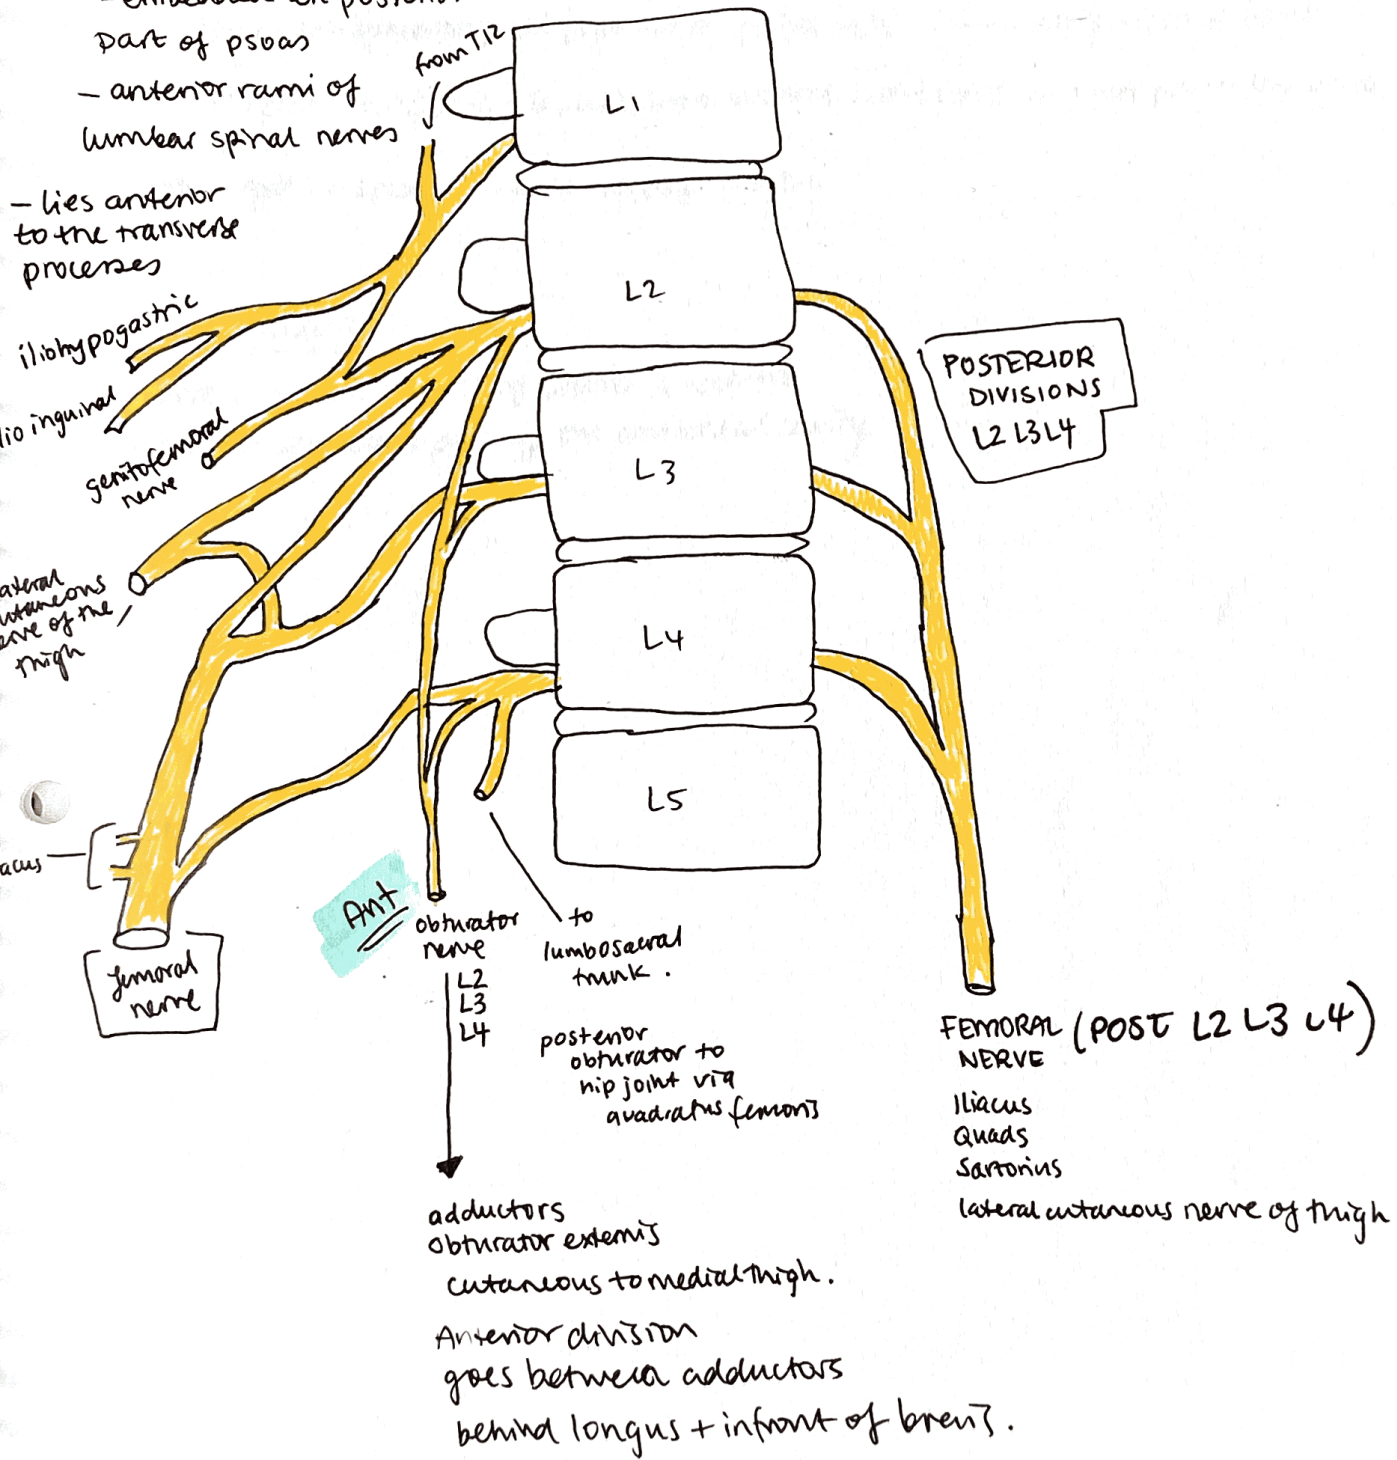 part of psoas
- anterior rami of
lumbar spinal nerves
- lies anterior
to the transverse
processes
from T12
L1
L2
L3
L4
L5
iliohypogastric
inguinal
genitofemoral
nerve
nerve of the
thigh
femoral
nerve
Ant
obturator
nerve
L2
L3
L4
to
lumbosacral
trunk.
posterior
obturator to
hip joint via
quadratus femoris
adductors
obturator externis
cutaneous to medial thigh.
Anterior division
goes between adductors
behind longus + infront of brevis.
POSTERIOR
DIVISIONS
L2 L3 L4
FEMORAL (POST L2 L3 L4)
NERVE
Iliacus
Quads
Sartorius
lateral cutaneous nerve of thigh